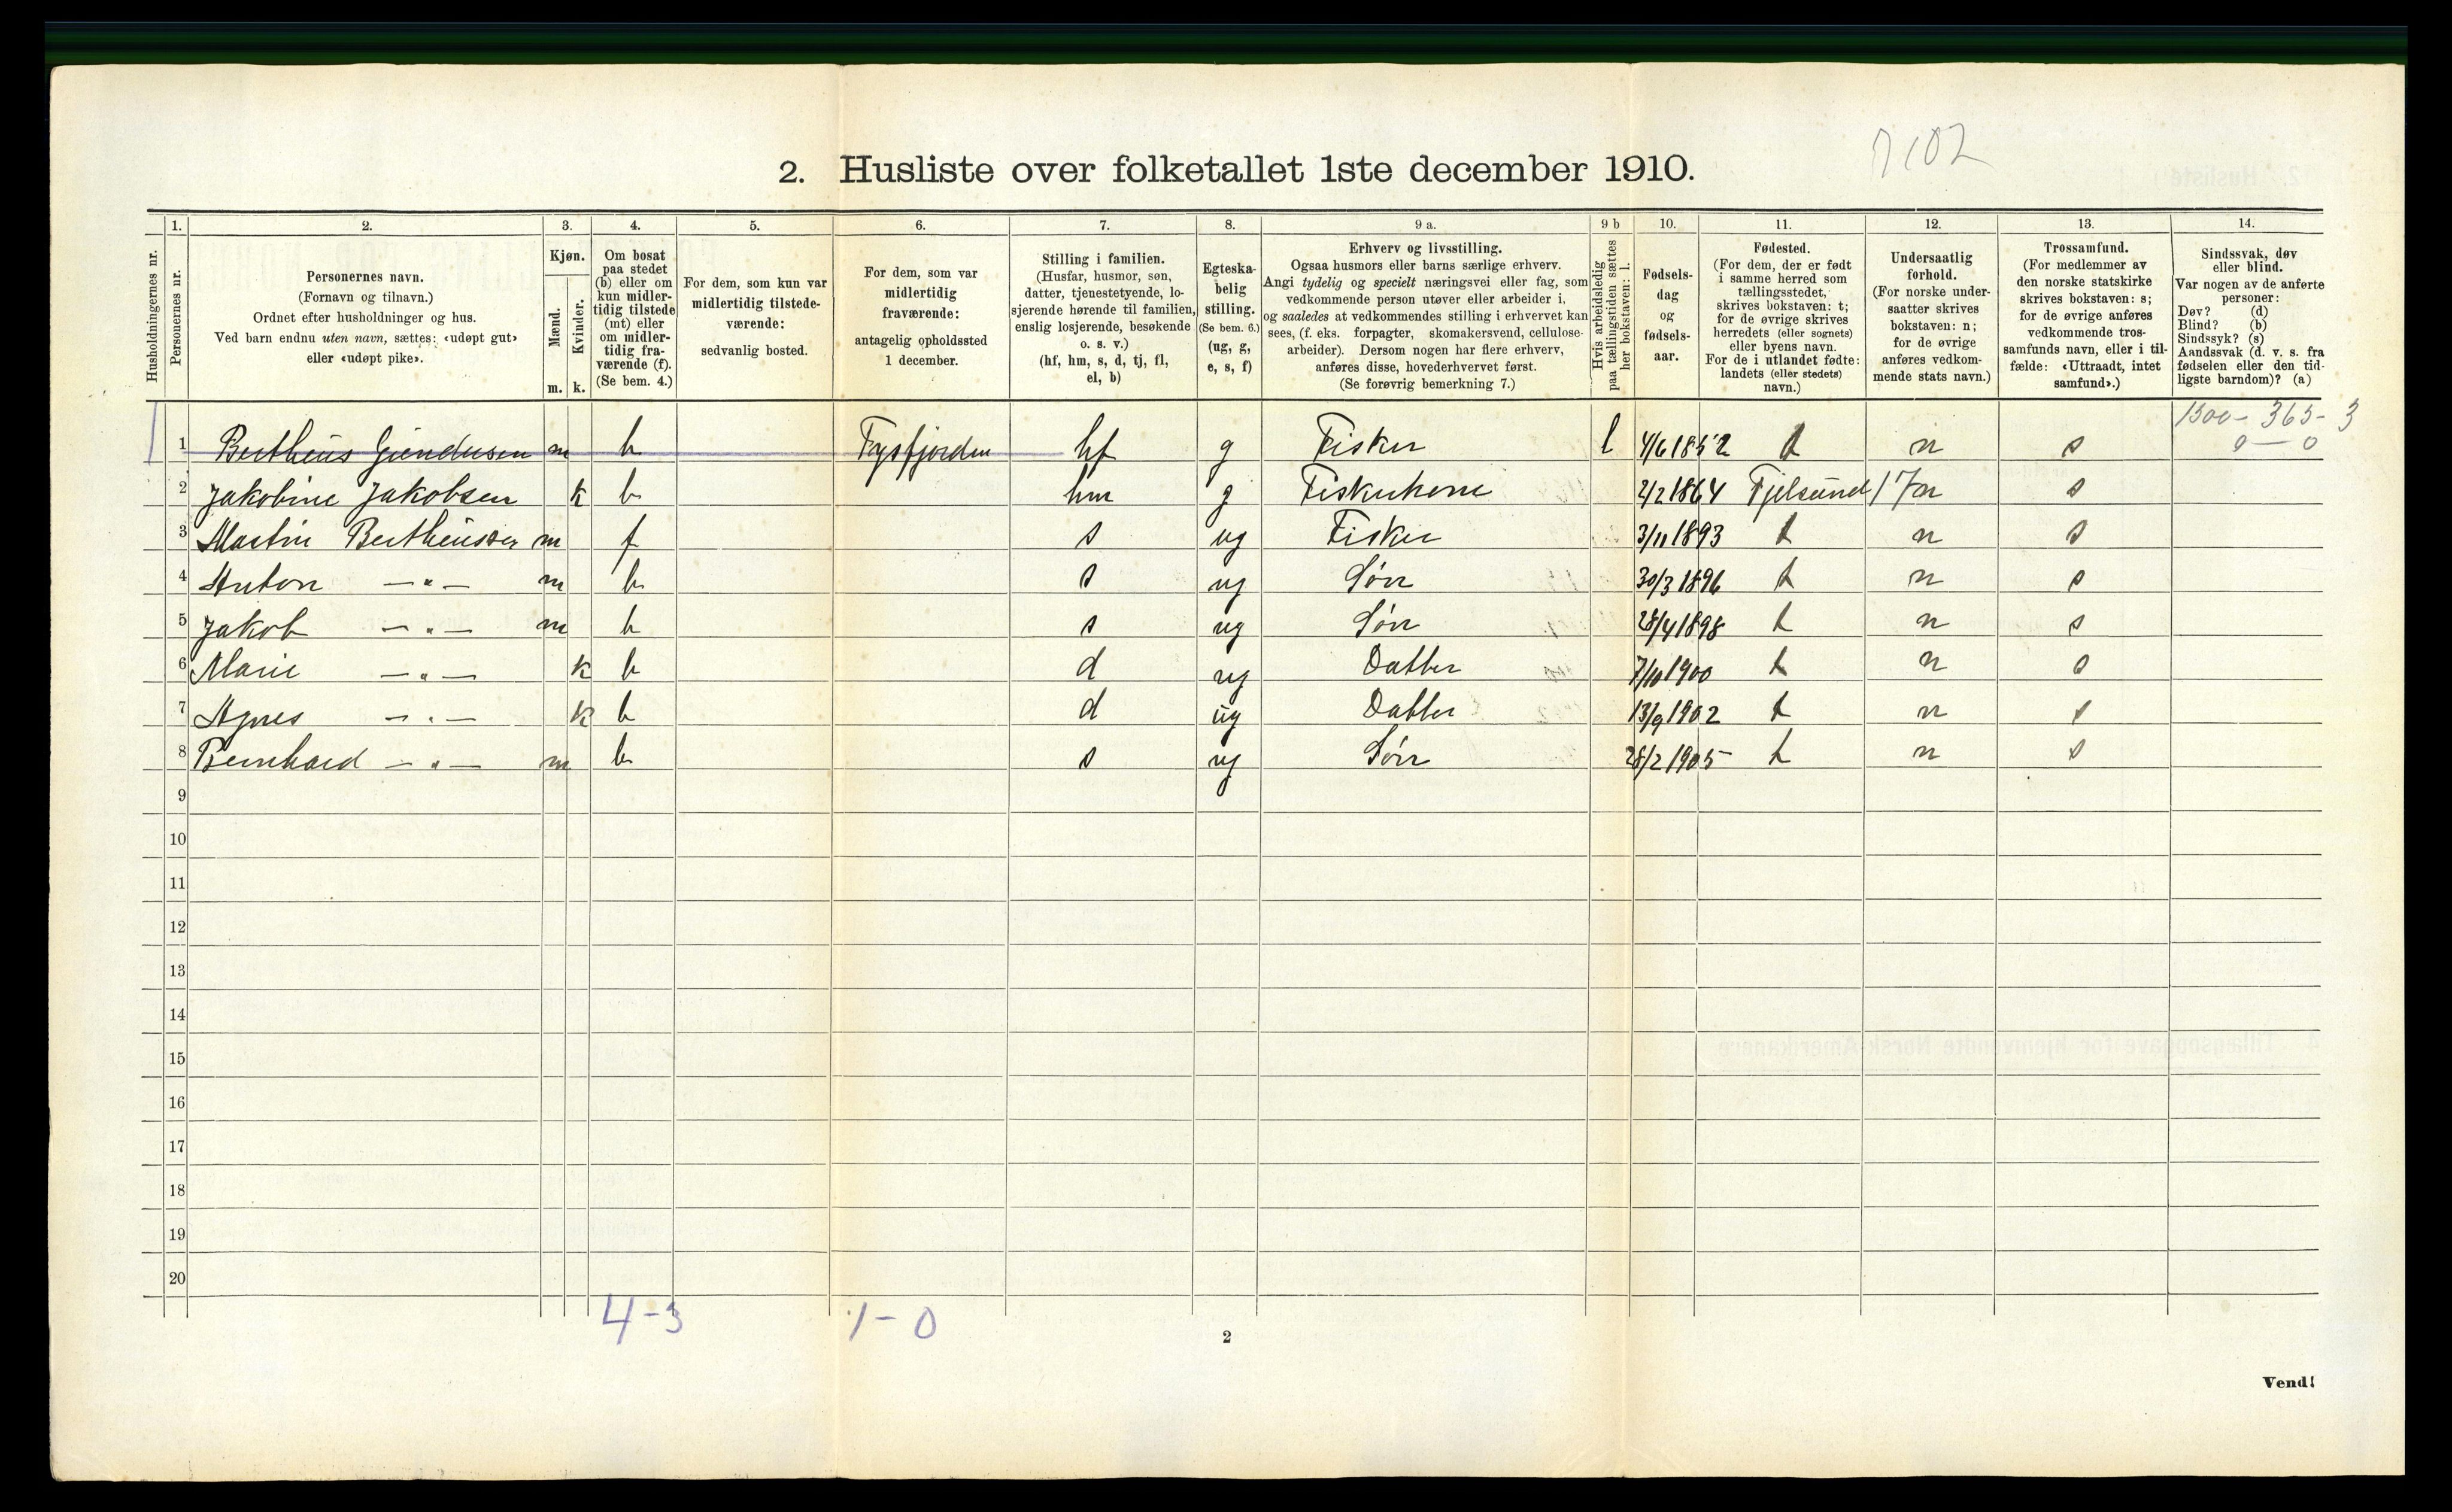 2. Husliste over folketallet 1ste december 1910.
Husholdningernes nr.
1. Personernes nr.
2. Personernes navn.
(Fornavn og tilnavn.)
Ordnet efter husholdninger og hus.
Ved barn endnu uten navn, sættes: «udøpt gut»
eller «udøpt pike».
3. Kjøn.
Mænd. m.
Kvinder. k.
4. Om bosat
paa stedet
(b) eller om
kun midler-
tidig tilstede
(mt) eller
om midler-
tidig fra-
værende (f).
(Se bem. 4.)
5. For dem, som kun var
midlertidig tilstede-
værende:
sedvanlig bosted.
6. For dem, som var
midlertidig
fraværende:
antagelig opholdssted
1 december.
7. Stilling i familien.
(Husfar, husmor, søn,
datter, tjenestetyende, lo-
sjerende hørende til familien,
enslig losjerende, besøkende
o. s. v.)
(hf, hm, s, d, tj, fl,
el, b)
8. Egteska-
belig
stilling.
(Se bem. 6.)
(ug, g,
e, s, f)
9 a. Erhverv og livsstilling.
Ogsaa husmors eller barns særlige erhverv.
Angi tydelig og specielt næringsvei eller fag, som
vedkommende person utøver eller arbeider i,
og saaledes at vedkommendes stilling i erhvervet kan
sees, (f. eks. forpagter, skomakersvend, cellulose-
arbeider). Dersom nogen har flere erhverv,
anføres disse, hovederhvervet først.
(Se forøvrig bemerkning 7.)
9 b Hvis arbeidsledig
paa tællingstiden sættes
her bokstaven: l.
10. Fødsels-
dag
og
fødsels-
aar.
11. Fødested.
(For dem, der er født
i samme herred som
tællingsstedet,
skrives bokstaven: t;
for de øvrige skrives
herredets (eller sognets)
eller byens navn.
For de i utlandet fødte:
landets (eller stedets)
navn.)
12. Undersaatlig
forhold.
(For norske under-
saatter skrives
bokstaven: n;
for de øvrige
anføres vedkom-
mende stats navn.)
13. Trossamfund.
(For medlemmer av
den norske statskirke
skrives bokstaven: s;
for de øvrige anføres
vedkommende tros-
samfunds navn, eller i til-
fælde: «Uttraadt, intet
samfund».)
14. Sindssvak, døv
eller blind.
Var nogen av de anførte
personer:
Døv? (d)
Blind? (b)
Sindssyk? (s)
Aandssvak (d. v. s. fra
fødselen eller den tid-
ligste barndom)? (a)
1500 - 365 - 3
0 — 0
1 Bertheus Gundersen m b Fysfjorden hf g Fisker l 4/6 1852 t n s
2 Jakobine Jakobsen k b hm g Fiskerkone 2/2 1864 Fjelsund 17 n s
3 Martin Bertheussen m f s ug Fisker 3/11 1893 t n s
4 Anton — " — m b s ug Søn 30/3 1896 t n s
5 Jakob — " — m b s ug Søn 28/4 1898 t n s
6 Marie — " — k b d ug Datter 7/10 1900 t n s
7 Agnes — " — k b d ug Datter 13/9 1902 t n s
8 Bernhard — " — m b s ug Søn 28/2 1905 t n s
9
10
11
12
13
14
15
16
17
18
19
20
4 - 3 1 - 0
2
Vend!